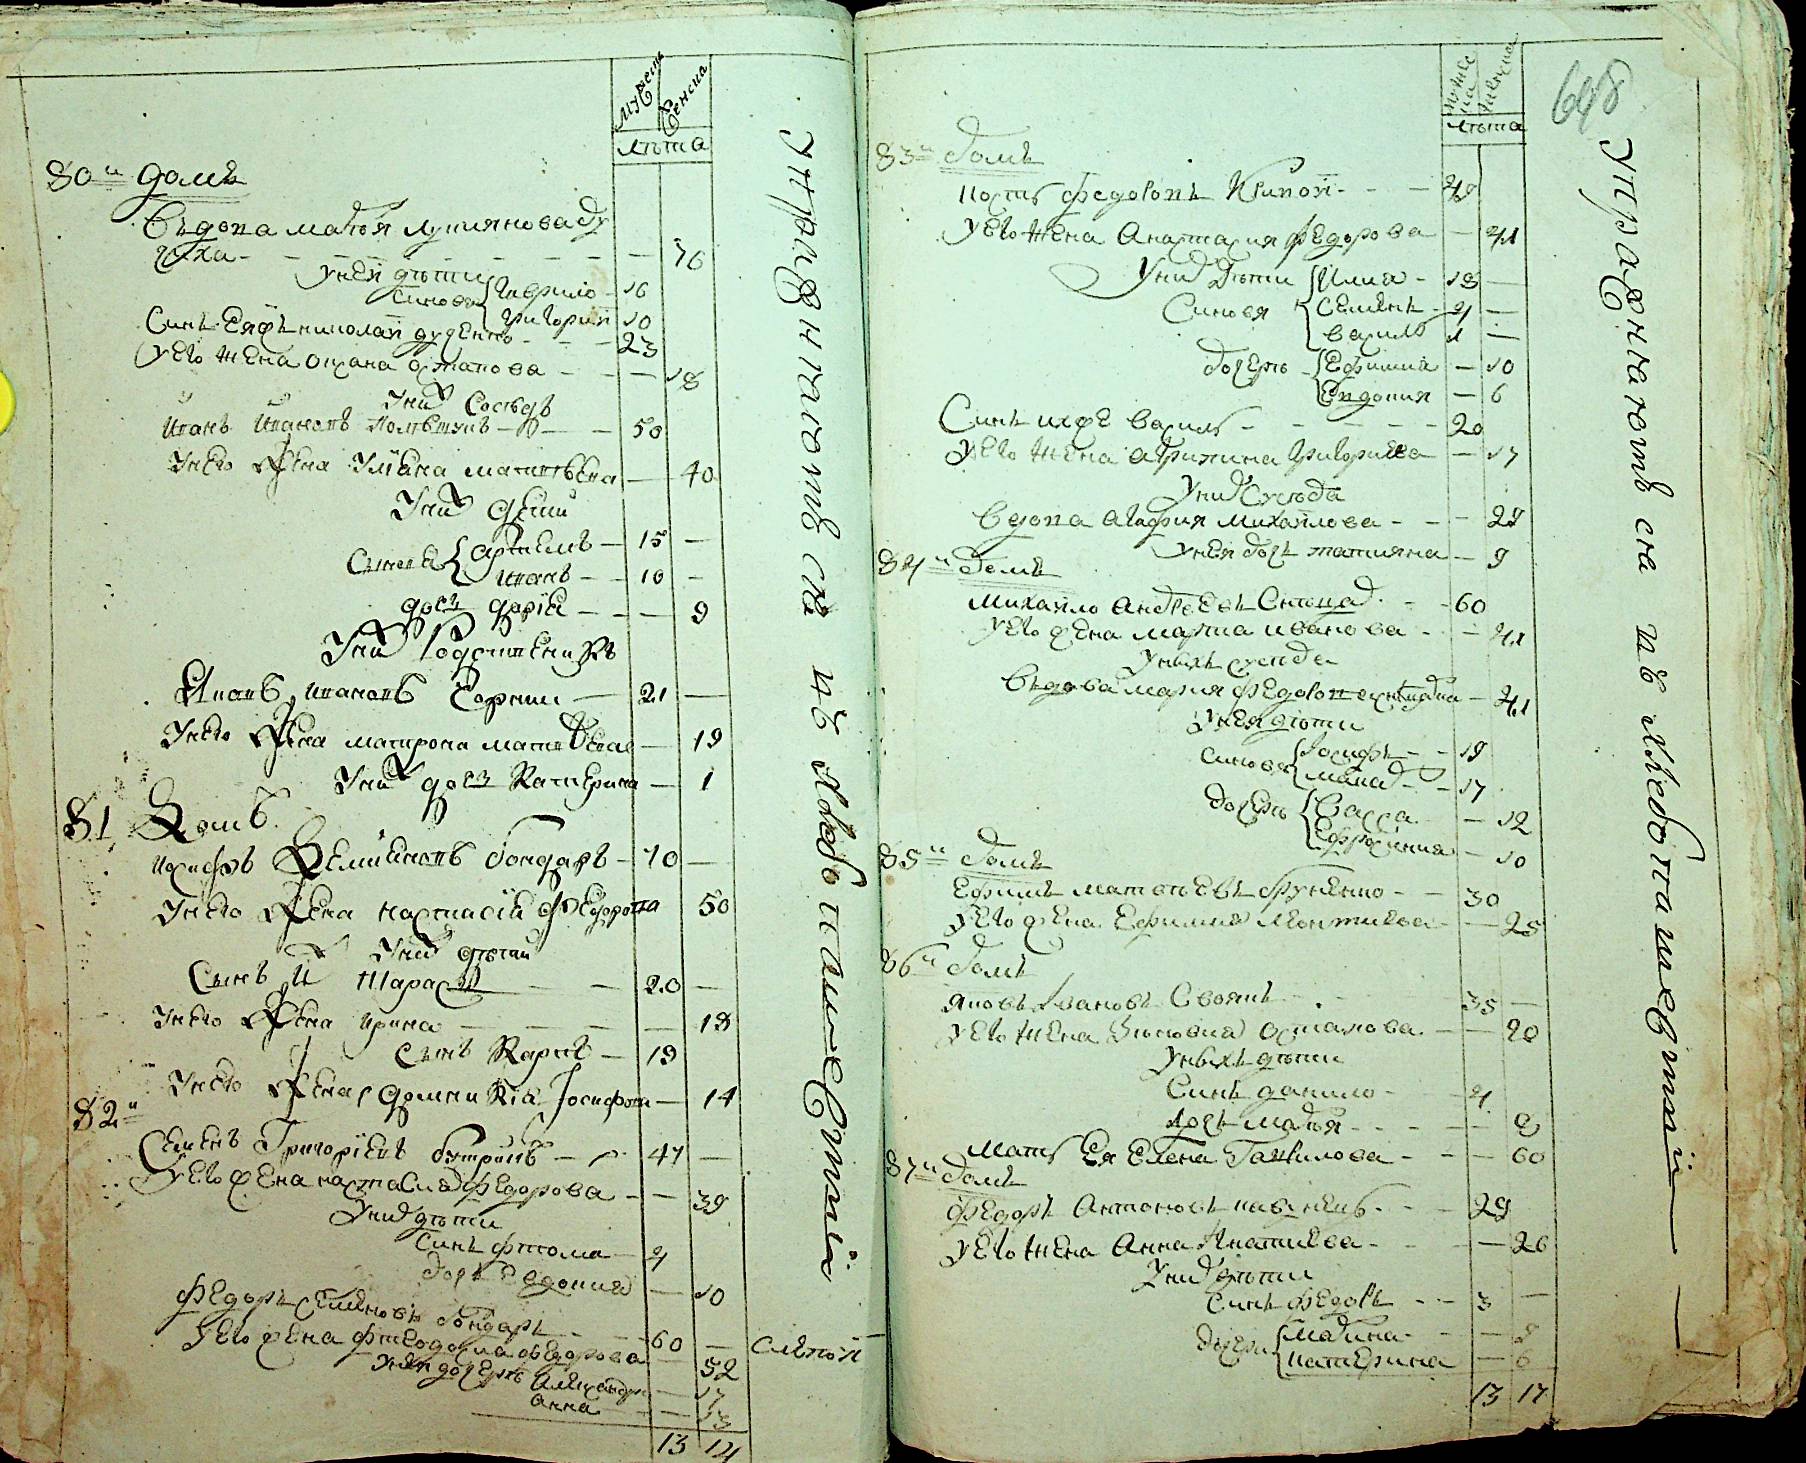 мужеска
женска
лѣта
80и домъ
Въдова марѳя лукиянова ду
чиха - 76
у неи дѣти
синовя гаврило - 16
григорий 10
Синъ Еяже николай дудченко - 23
у Его жена оксана остапова - 18
у них Сосѣдъ
Иванъ Ивановъ - 50
у него жена Улѣяна матвѣева - 40
у них дети
Сыновя артемъ - 15
иванъ - 10
дочь дарїя - 9
у них подсуседникъ
Иванъ ивановъ Чорний - 21
у него жена матрона матвѣева - 19
у них дочъ Катерина - 1
81 Домъ
иосифъ Демияновъ бондарь - 70
у него жена настасїя Федорова 50
у них дѣтей
Сынъ Тарасъ - 20
у него жена ирина - 18
сынъ Карпъ - 19
у него жена домникїя Іосифова - 14
82и
Семенъ Григорїевъ бутринъ - 47
у Его жена настасия федорова - 39
у них дѣти
синъ фтома - 4
дочъ Евдокия - 10
Федоръ Семеновъ бондарь - 60 - слепой
у Его жена фтеодосиа федорова - 52
у них дочерь Александра - 17
анна - 13
13 14
упражняютъ ся въ хлебопашествїи
648
мужеска
женска
лѣта
83и домъ
костъ федоровъ Кривой - 48
у Его жена Анастасия федорова - 41
у них дѣти
Синовя Илия - 18
Семенъ - 4
василь 1
дочерь Ефимия - 10
Евдокия - 6
Синъ ихже василь - 20
у Его жена агрипина григориева - 17
у них Сусѣда
Вдова агафия михайлова - 28
у нея дочъ татияна - 9
84и домъ
михайло андреевъ - 60
у Его жена марта иванова - 41
у ныхъ сусѣда
Въдова мария федоровна - 41
у нея дѣти
синовя Іосифъ - 19
17
дочерь Васса - 12
Ефросиния - 10
85и домъ
Ефимъ матвѣевъ - 30
у Его жена Ефимия - 25
86и домъ
яковъ Івановъ - 35
у Его жена Зѣновия остапова - 20
у ныхъ дѣти
Синъ данило - 4
дочъ марѳя - 2
мать Ея Елена Гаврилова - 60
87и домъ
федоръ антоновъ - 29
у Его жена анна Игнатиева - 26
у них дѣти
Синъ федоръ - 3
дочери марина - 8
катерина - 6
13 17
упражняютъ ся въ хлебопашествїи